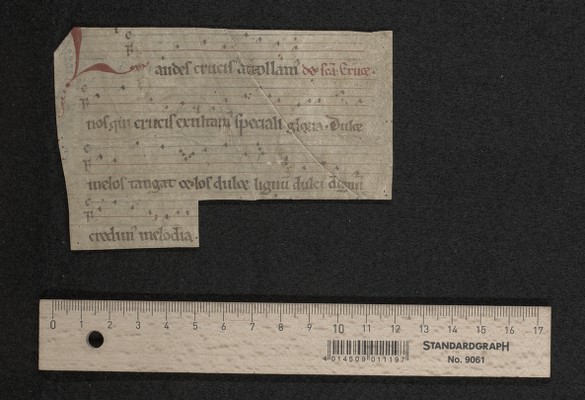 Laudes crucis attollam' de sca Cruce.
nos qui crucis exultam' speciali gloria. Dulce
melos tangat celos dulce lignu dulci dignu
credim' melodia.
0 1 2 3 4 5 6 7 8 9 10 11 12 13 14 15 16 17
4 014509 011197
STANDARDGRAPH
No. 9061